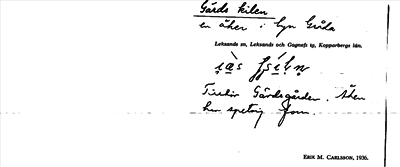 Gärds kilen
en åker i byn Gråda
Leksands sn, Leksands och Gagnefs tg, Kopparbergs län.
Tillhör Gärdsgården. Åkern
har spetsig form.
ERIK M. CARLSSON, 1936.